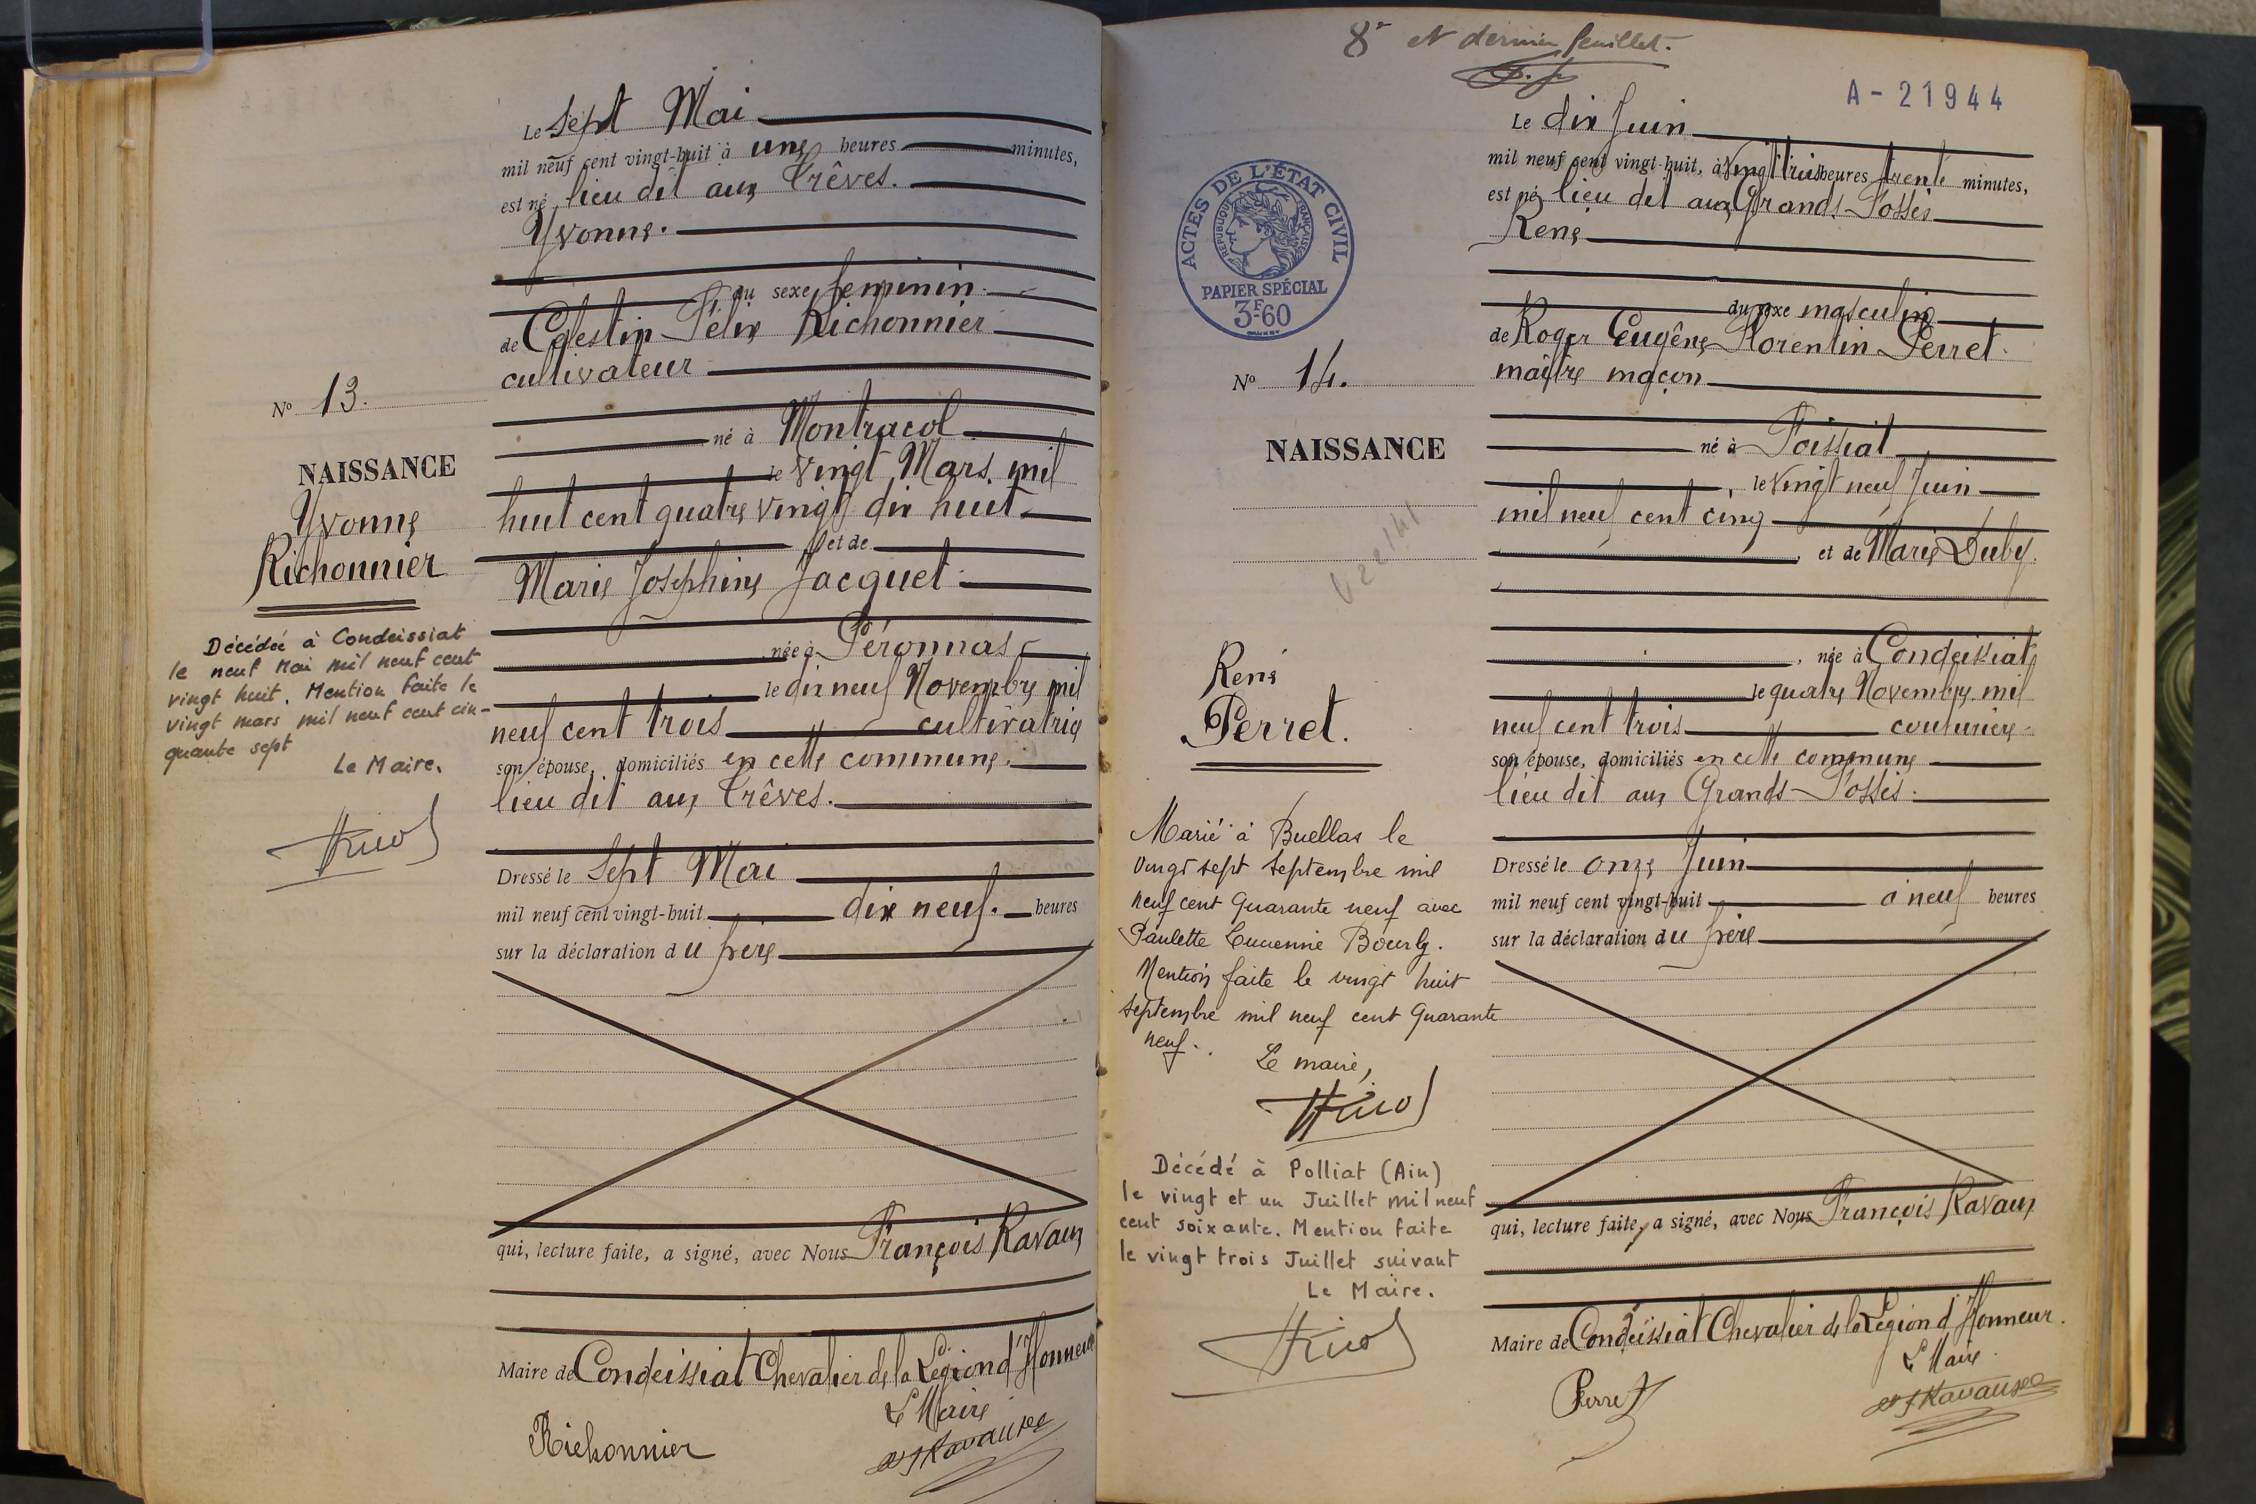 Le Sept Mai
mil neuf cent vingt-huit à une heures minutes,
est né lieu dit aux Trêves.
Yvonne.
du sexe féminin
de Célestin Félix Richonnier
cultivateur
né à Montracol
le vingt Mars mil
huit cent quatre vingt dix huit
et de
Marie Joséphine Jacquet
née à Péronnas
le dix neuf Novembre mil
neuf cent trois cultivatrice
son épouse, domiciliés en cette commune.
lieu dit aux Trêves.
Dressé le Sept Mai
mil neuf cent vingt-huit dix neuf. heures
sur la déclaration du père
qui, lecture faite, a signé, avec Nous François Ravaux
Maire de Condeissiat Chevalier de la Légion d'Honneur
Le Maire
Richonnier
Nº 13.
NAISSANCE
Yvonne
Richonnier
Décédée à Condeissiat
le neuf Mai mil neuf cent
vingt huit. Mention faite le
vingt mars mil neuf cent cin-
quante sept
Le Maire.
8e et dernier feuillet.
A-21944
Le dix Juin
mil neuf cent vingt-huit, à vingt trois heures trente minutes,
est né lieu dit aux Grands Fossés
René
du sexe masculin
de Roger Eugène Florentin Perret
maître maçon
né à Foissiat
le vingt neuf Juin
mil neuf cent cinq
et de Marie Duby.
née à Condeissiat
le quatre Novembre mil
neuf cent trois couturière
son épouse, domiciliés en cette commune
lieu dit aux Grands Fossés.
Dressé le onze Juin
mil neuf cent vingt-huit à neuf heures
sur la déclaration du père
qui, lecture faite, a signé, avec Nous François Ravaux
Maire de Condeissiat Chevalier de la Légion d'Honneur.
Le Maire
Perret
ACTES DE L'ÉTAT CIVIL
RÉPUBLIQUE FRANÇAISE
PAPIER SPÉCIAL
3F60
Nº 14.
NAISSANCE
René
Perret.
Marié à Buellas le
vingt sept Septembre mil
neuf cent Quarante neuf avec
Paulette Lucienne Bourg.
Mention faite le vingt huit
Septembre mil neuf cent Quarante
neuf.
Le maire,
Décédé à Polliat (Ain)
le vingt et un Juillet mil neuf
cent soixante. Mention faite
le vingt trois Juillet suivant
Le Maire.